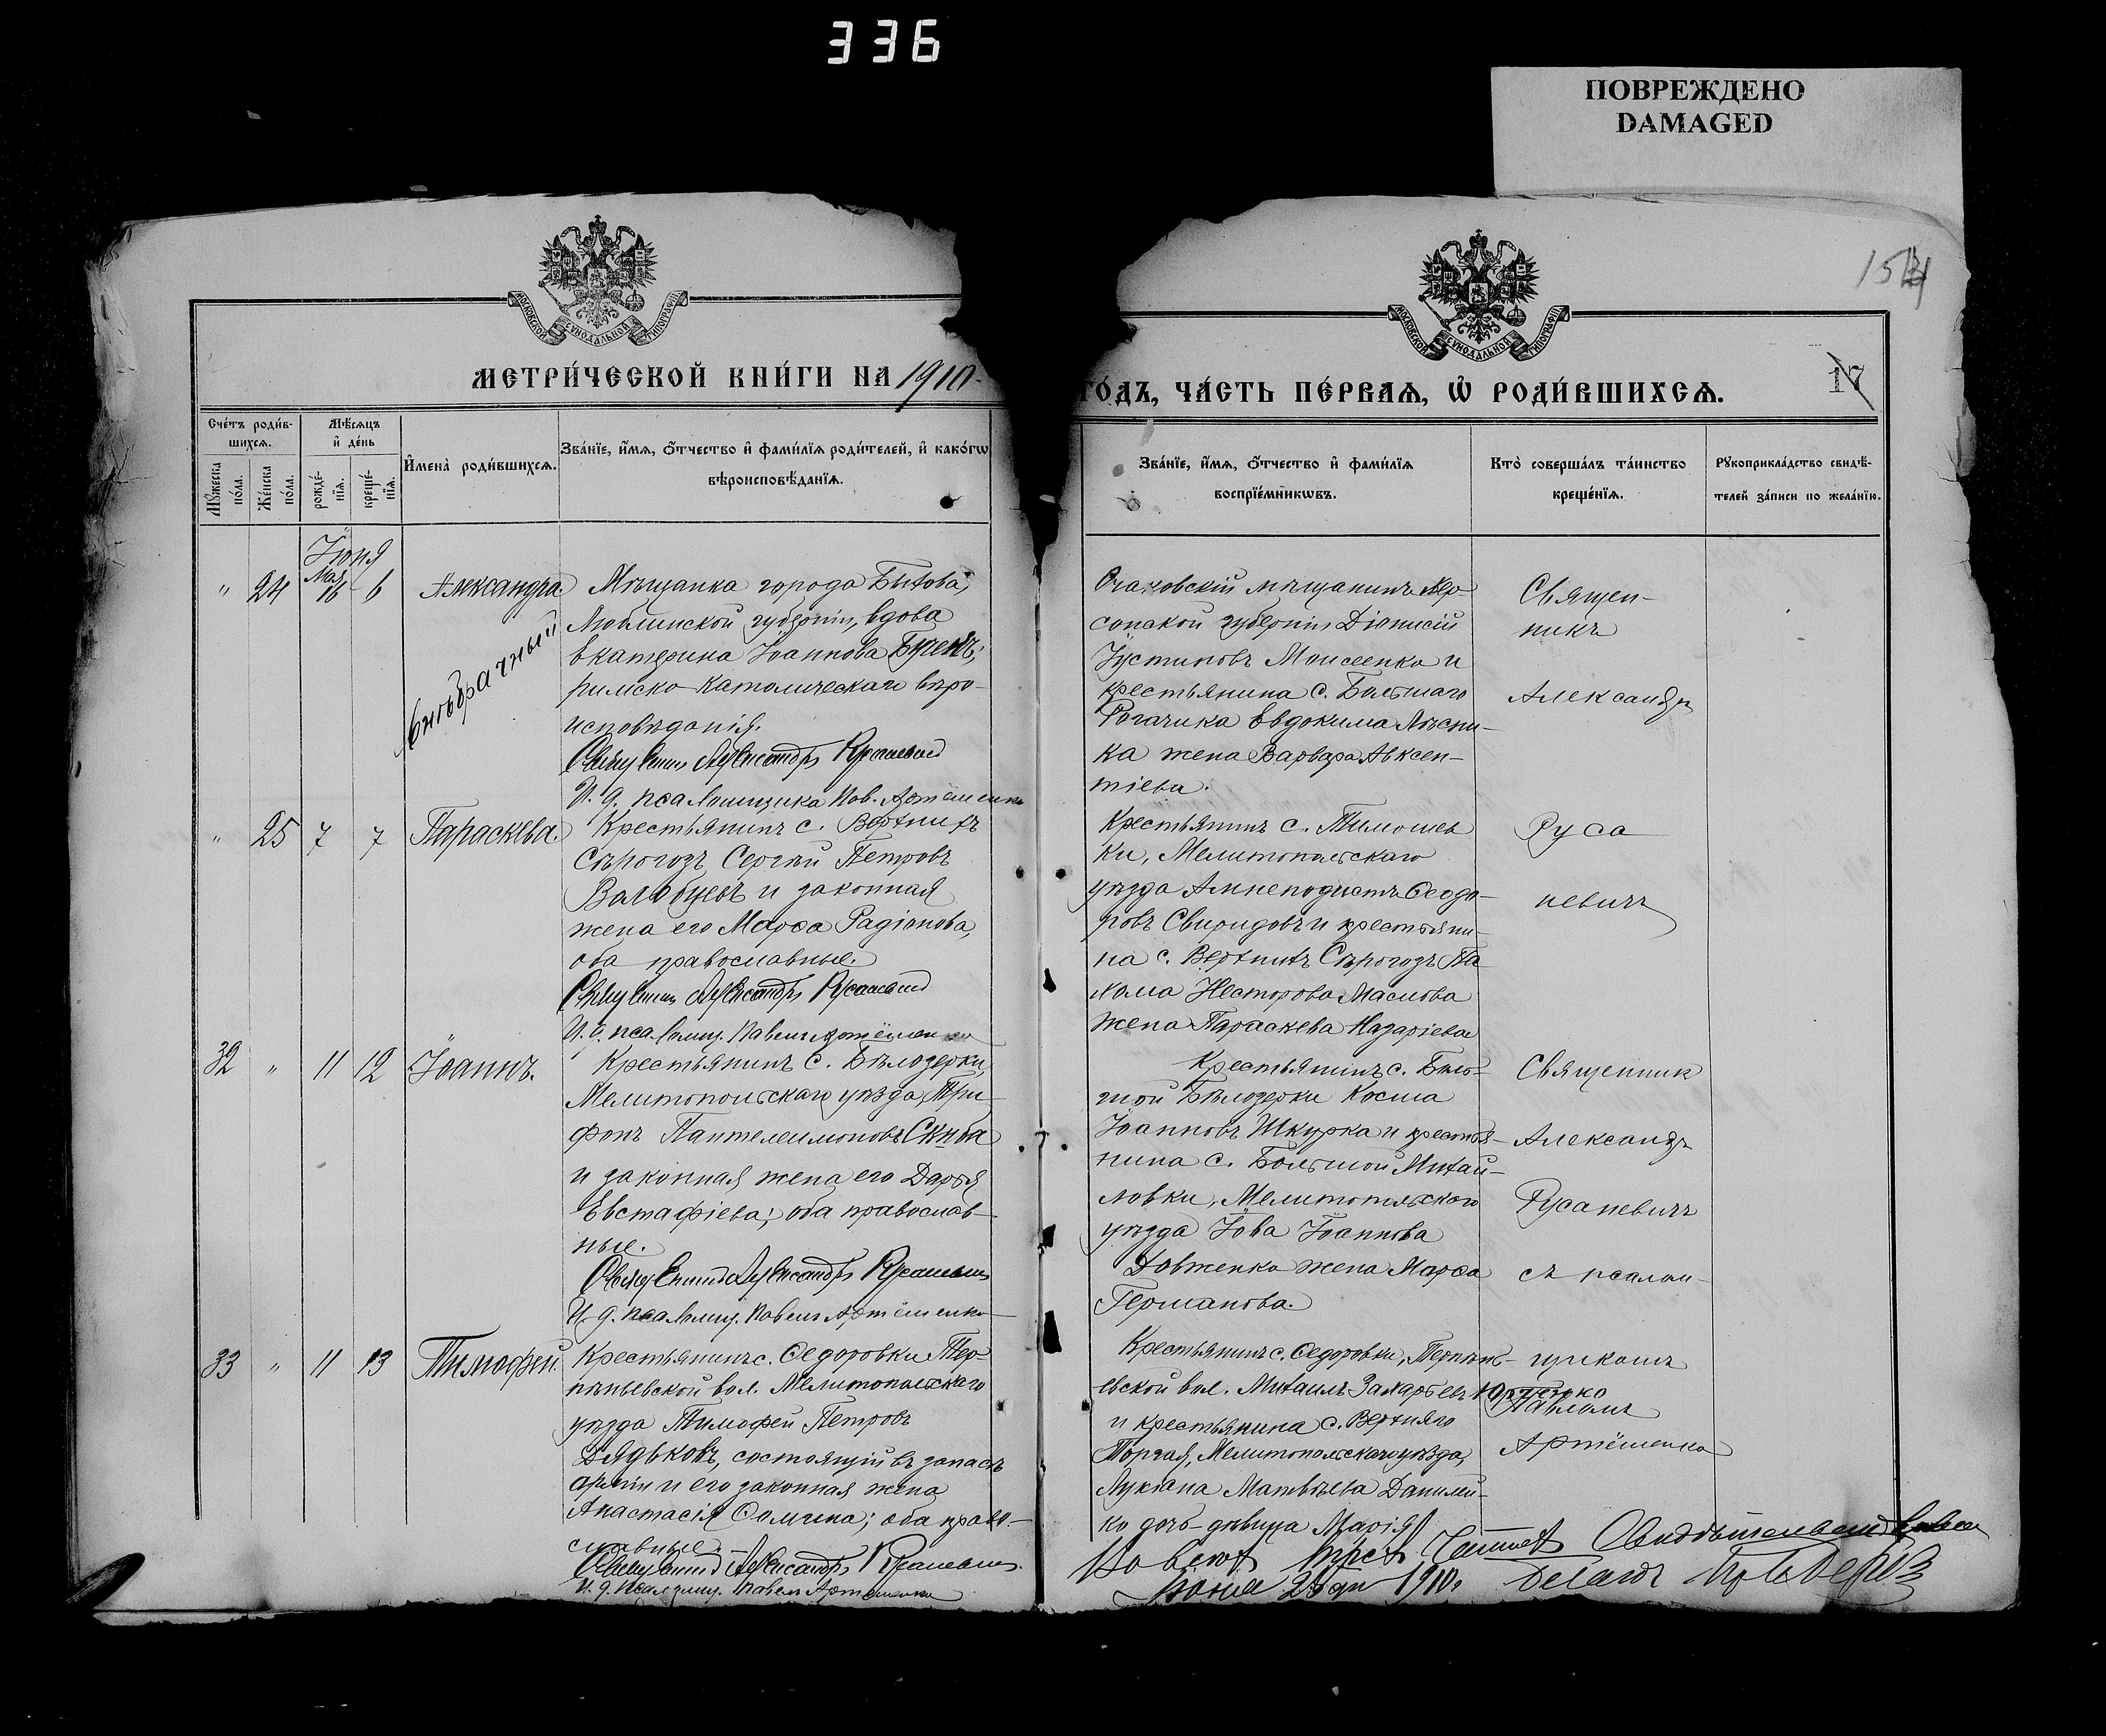 336
ПОВРЕЖДЕНО
DAMAGED
МОСКОВСКОЙ СѴНОДАЛЬНОЙ ТИПОГРАФІИ
МОСКОВСКОЙ СѴНОДАЛЬНОЙ ТИПОГРАФІИ
МЕТРИ́ЧЕСКОЙ КНИ́ГИ НА 1910
ГО́ДЪ, ЧА́СТЬ ПЕ́РВАЯ, Ѡ҆ РОДИ́ВШИХСЯ.
17
Сче́тъ роди́в-
шихся.
Мꙋ́жеска по́ла.
Же́нска по́ла.
Мѣ́сяцъ
и҆ де́нь
рожде́-
нїя.
креще́-
нїя.
И҆мена̀ роди́вшихся.
Зва́нїе, и҆́мя, ѻ҆́тчество и҆ фами́лїя роди́телей, и҆ како́гѡ
вѣроисповѣ́данїя.
Зва́нїе, и҆́мя, ѻ҆́тчество и҆ фами́лїя
воспрїе́мникѡвъ.
Кто̀ соверша́лъ та́инство
креще́нїя.
Рꙋкоприкла́дство свидѣ́-
телей за́писи по жела́нїю.
Іюня
Мая
" 24 16 6 Александра.
внѣбрачный
Мѣщанка города Быхова,
Люблинской губерніи, вдова
Екатерина Іоаннова
римско-католическаго вѣро-
исповѣданія.
Священникъ Александръ Русаневичъ
И. д. псаломщика Пав. Артёменко
Очаковскій мѣщанинъ Хер-
сонской губерніи Діонисій
Іустиновъ Моисеенко и
крестьянина с. Большаго
Рогачика Евдокима Лѣсни-
ка жена Варвара Авксен-
тіева.
Священ-
никъ
Александръ
" 25 7 7 Параскева.
Крестьянинъ с. Верхнихъ
Сѣрогозъ Сергѣй Петровъ
и законная
жена его Марѳа Радіонова,
оба православные.
Священникъ Александръ Русаневичъ
И. д. псаломщ. Павелъ Артёменко
Крестьянинъ с. Тимошев
ки, Мелитопольскаго
уѣзда Амнеподистъ Ѳеодо-
ровъ Свиридовъ и крестьяни-
на с. Верхнихъ Сѣрогозъ Па
хома Несторова Маслова
жена Параскева Назаріева
Руса
невичъ
32 " 11 12 Іоаннъ.
Крестьянинъ с. Бѣлозерки,
Мелитопольскаго уѣзда, Три-
фонъ Пантелеимоновъ Скиба
и законная жена его Дарья
Евстафіева; оба православ-
ные.
Священникъ Александръ Русаневичъ
И. д. псаломщ. Павелъ Артёменко
Крестьянинъ с.
Бѣлозерки Косма
Іоанновъ Шкурка и крестья-
нина с. Большой Михай-
ловки, Мелитопольскаго
уѣзда Іова Іоаннова
Довженко жена Марѳа
Германова.
Священник
Александръ
Русаневичъ
съ псалом-
33 " 11 13 Тимофей.
Крестьянинъ с. Ѳедоровки Тер-
пѣньевской вол. Мелитопольскаго
уѣзда Тимофей Петровъ
Дядьковъ, состоящій въ запасѣ
арміи и его законная жена
Анастасія Ѳомина; оба право-
славные.
Священникъ Александръ Русаневичъ
И. д. псаломщ. Павелъ Артёменко
Крестьянинъ с. Ѳедоровки, Терпѣнь-
евской вол. Михаилъ Захарьевъ Юрченко
и крестьянина с. Верхняго
Торгая, Мелитопольскаго уѣзда,
Лукіана Матвѣева Данилей-
ко дочь-дѣвица Марія
щикомъ
Павломъ
Артёменко
Іюня 25 дня 1910.